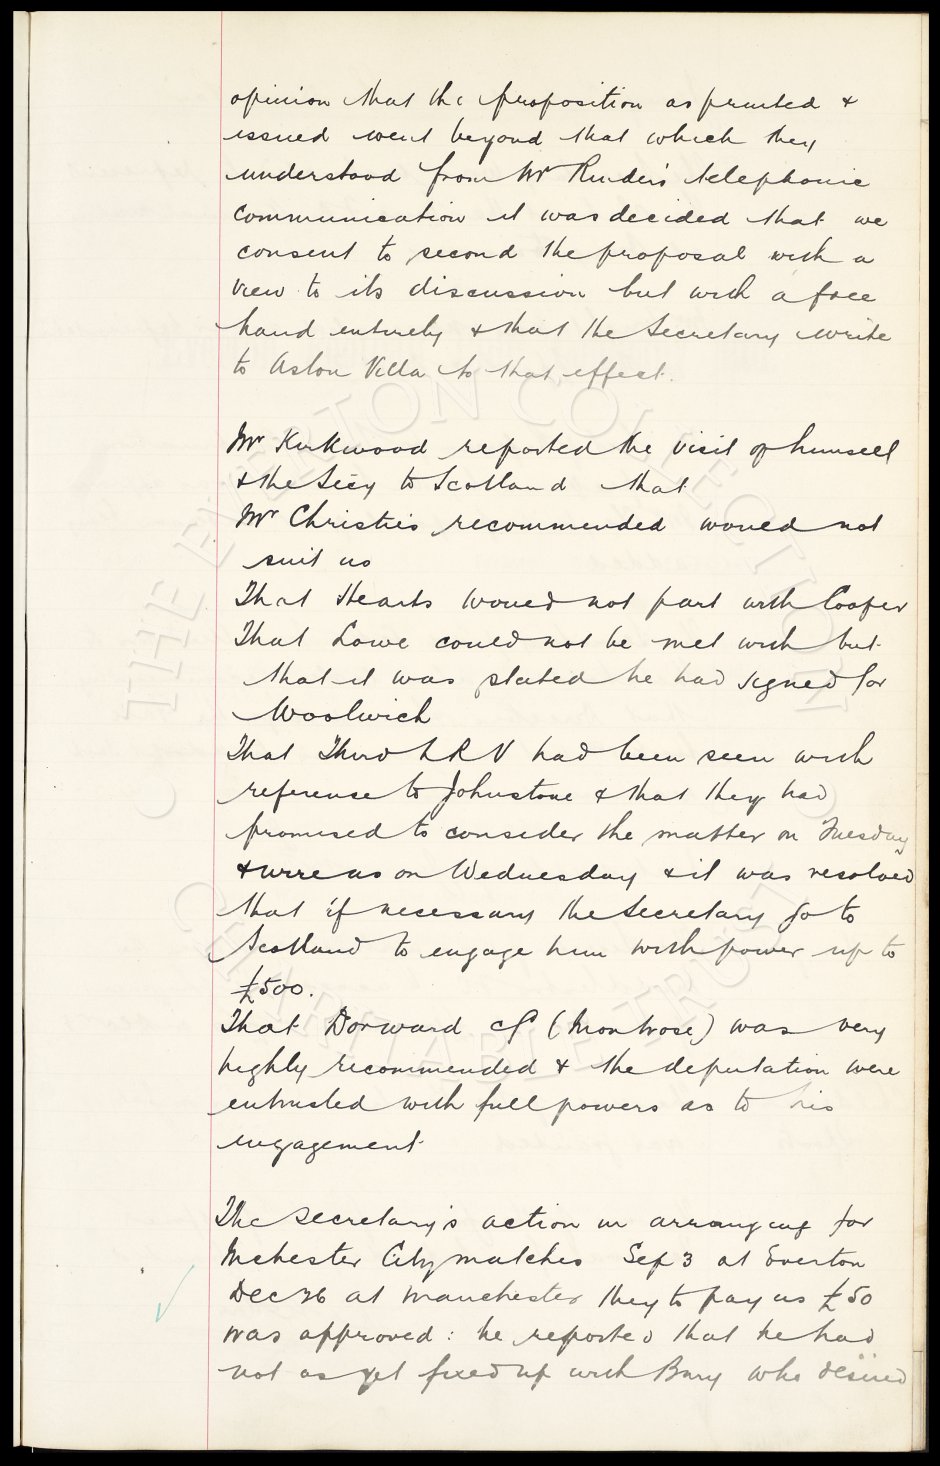 opinion that the proposition as printed &
issued went beyond that which they
understood from Mr Rinder's telephonic
communication it was decided that we
consent to second the proposal with a
view to its discussion but with a free
hand entirely & that the Secretary write
to Aston Villa to that effect.
Mr Kirkwood reported the visit of himself
& the Secy to Scotland that
Mr Christie's recommended would not
suit us
That Hearts would not part with Cooper
That Lowe could not be met with but
that it was stated he had signed for
Woolwich
That Third L R V had been seen with
reference to Johnstone & that they had
promised to consider the matter on Tuesday
& wire us on Wednesday & it was resolved
that if necessary the Secretary go to
Scotland to engage him with power up to
£500.
That Dorward CF (Montrose) was very
highly recommended & the deputation were
entrusted with full powers as to his
engagement
The Secretary's action in arranging for
Mchester City matches Sep 3 at Everton
Dec 26 at Manchester they to pay us £50
was approved: he reported that he had
not as yet fixed up with Bury who desired
THE EVERTON COLLECTION
CHARITABLE TRUST